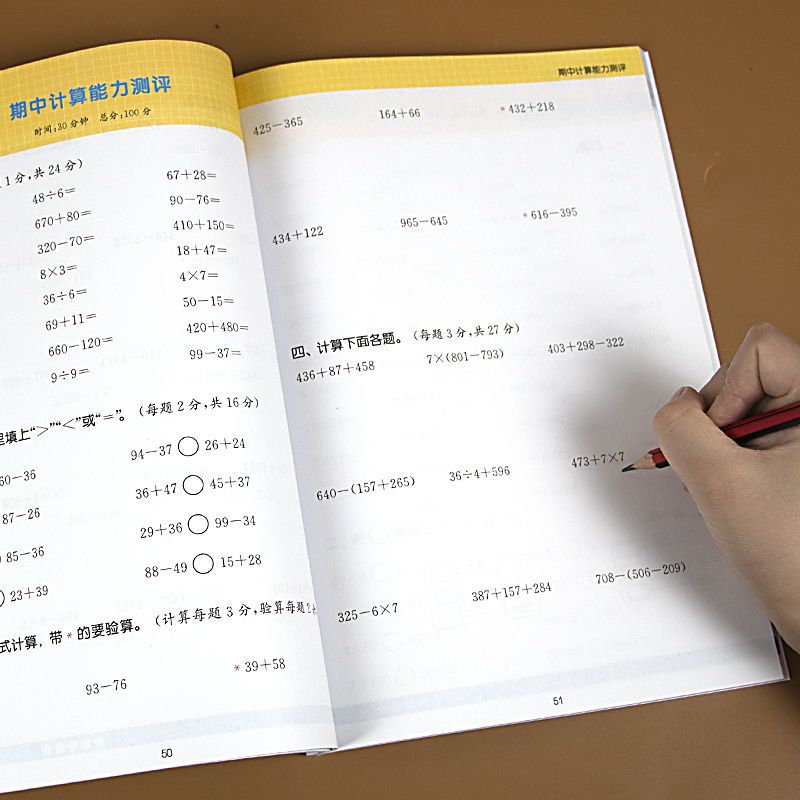 期中计算能力测评
时间:30分钟 总分:100分
1分,共24分)
48÷6= 67+28=
670+80= 90-76=
320-70= 410+150=
8×3= 18+47=
36÷6= 4×7=
69+11= 50-15=
660-120= 420+480=
9÷9= 99-37=
填上“>”“<”或“=”。(每题2分,共16分)
60-36 94-37○26+24
87-26 36+47○45+37
85-36 29+36○99-34
○23+39 88-49○15+28
式计算,带*的要验算。(计算每题3分,验算每题2分
93-76 *39+58
50
期中计算能力测评
425-365 164+66 *432+218
434+122 965-645 *616-395
四、计算下面各题。(每题3分,共27分)
436+87+458 7×(801-793) 403+298-322
640-(157+265) 36÷4+596 473+7×7
325-6×7 387+157+284 708-(506-209)
51